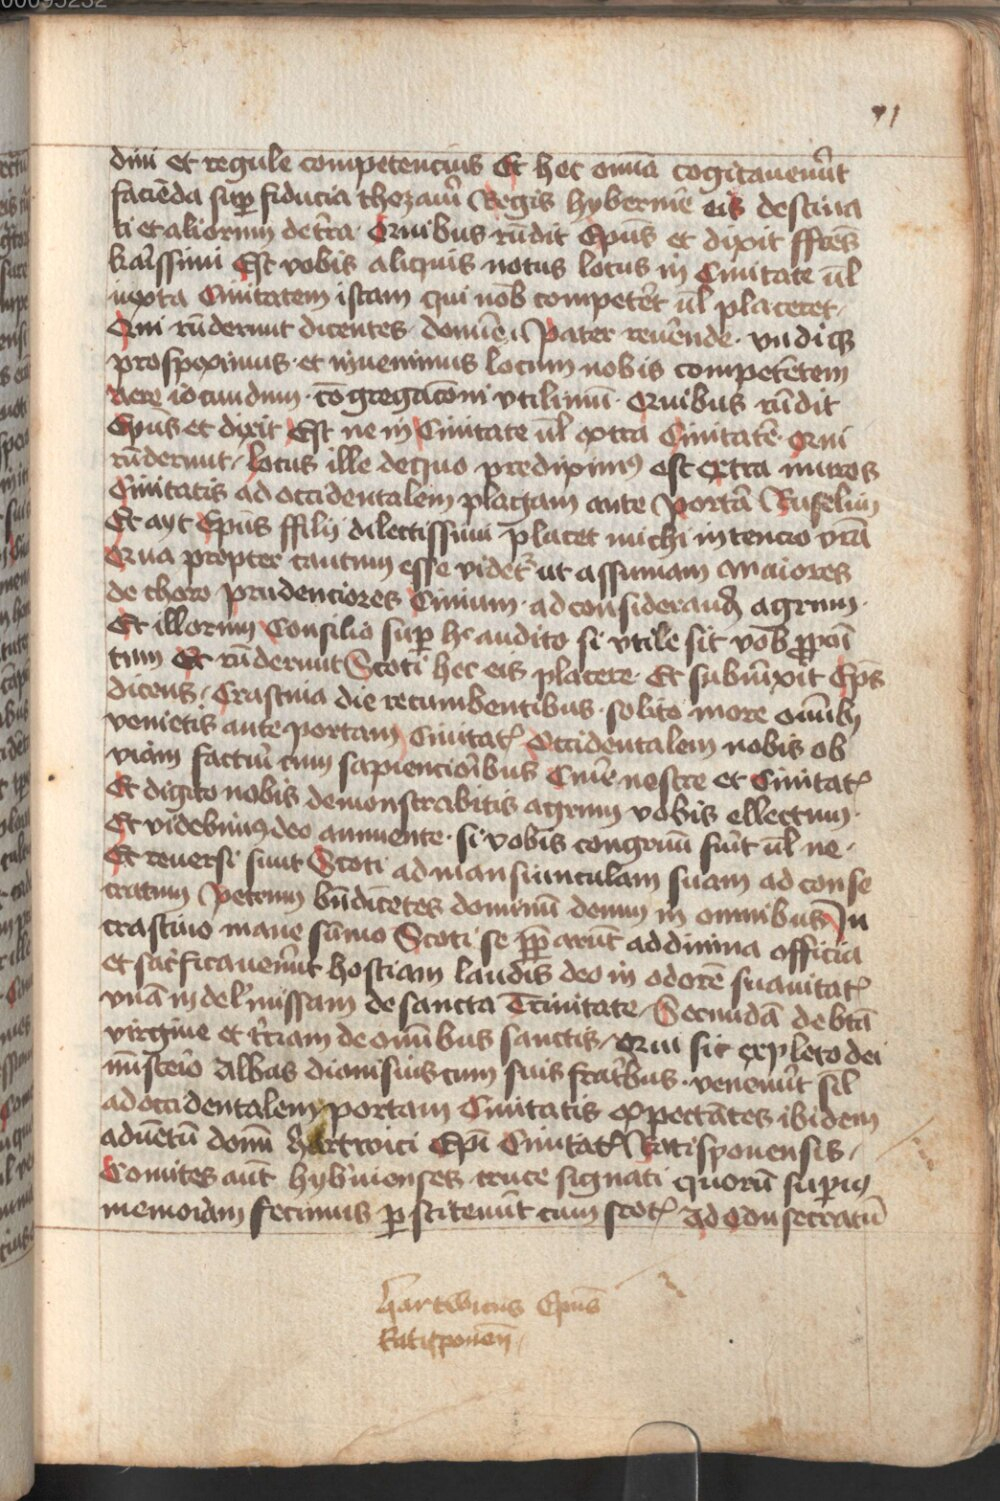 00095252
71
dini et regule competencius Et hec om̄ia cogitauer̄ut
faciēda sup̲ fiducia thezaur̄i Regis hybernie eis destina
ti et aliorum de tr̄ra. Quibus rn̄dit Ep̄us et dixit ffr̄es
kar̄issimi Est vobis aliquis notus locus in Ciuitate ūl
iuxta Ciuitatem istam qui nob̄ competēt ūl placeret.
Qui rn̄derunt dicentes. domine Pater reuēnde. vndiqꝫ
prospeximus. et inuenimus locum nobis competētem
vere iocundum. cōgregac̄oni vtilimū. Quibus rn̄dit
Ep̄us et dixit Est ne in Ciuitate ūl extra Ciuitatē. Qui
rn̄derunt. locus ille de quo prediximꝰ est extra muros
Ciuitatis ad occidentalem plagam ante Portā Ruselim
Et ayt Ep̄us ffilij dilectissimi placet michi intencio vr̄a
Qua propter tantum esse videt̄ ut assumam Maiores
de choro prudenciores Ciuium. ad considerand̄ agrum.
Et illorum Consilio sup̲ hᶜ audito si vtile sit vob̄
tim Et rn̄derunt Scoti hec eis placere. Et subiūxit Ep̄s
dicens. Crastina die recumbentibus. solito more om̄ibꝫ
venietis ante portam Ciuitatꝭ Occidentalem nobis ob
viam factur̄i cum sapiencior̄ibus Curie nostre et Ciuitatꝭ
Et digito nobis demonstrabitis agrum vobis ellectum.
Et videbimꝰ deo annuente. si vobis congruū fūit ūl ne.
Et reuersi sunt Scoti ad mansiunculam suam ad conse
cratum Petrum bn̄dicētes dominū deum in omnibus In
crastino mane sūmo Scoti se p̲p̲arūt ad diuina officia
et sac̄ficauer̄ut hostiam laudis deo in odorē suauitatꝭ
vnā in delꝰ missam de sancta Trinitate. Secundā de btā
virgine et tr̄ciam de om̄ibus sanctis. Qui sic expleto dei
mīsterīo Albas dionisius cum suis fratr̄bus. venerūt sīl
ad occidentalem portam Ciuitatis expectātes ibidem
aduētū domī hartwici Ep̄i Ciuitatꝭ Ratisponensis.
Comites aūt hyb̄nienses cruce signati quorū sup̲iꝰ
memoriam fecimus p̲stiterūt cum scotꝭ ad Consecratū
hartwicus Ep̄us
Ratisponen̄